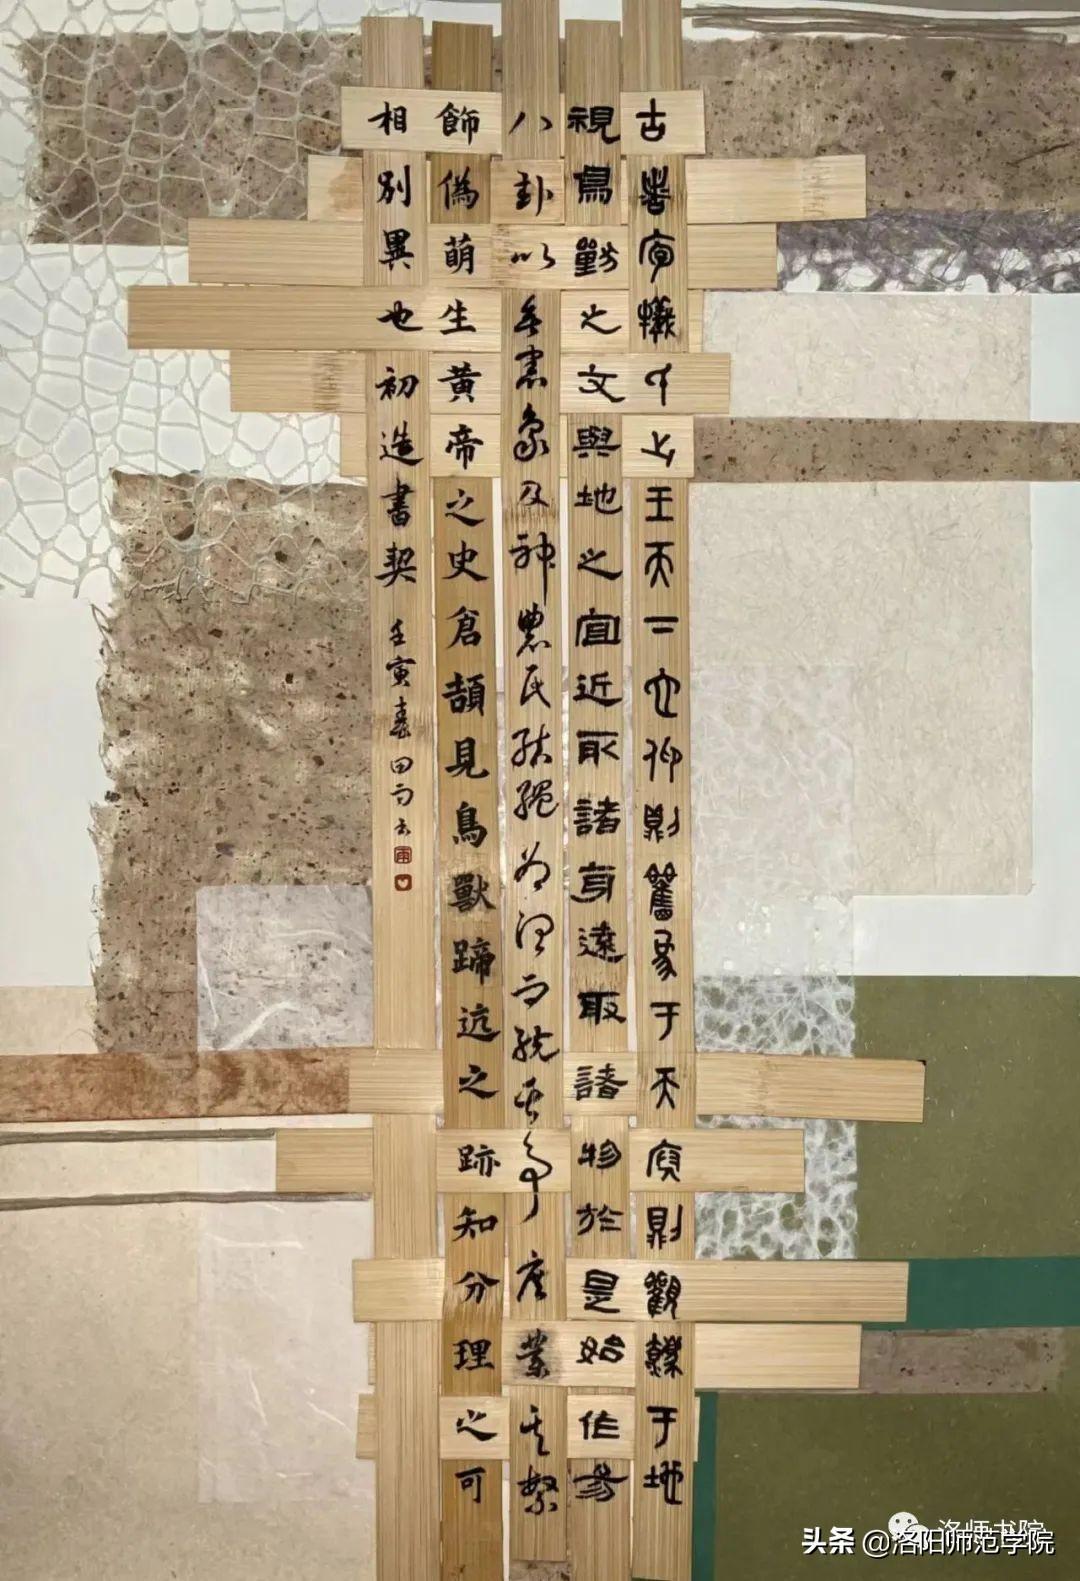 古者庖犧氏之王天下也仰則觀象于天俯則觀灋于地
視鳥獸之文與地之宜近取諸身遠取諸物於是始作易
八卦以垂憲象及神農氏結繩為治而統其事庶業其繁
飾僞萌生黃帝之史倉頡見鳥獸蹄迒之跡知分理之可
相別異也初造書契
壬寅春田
洛师书院
头条 @洛阳师范学院